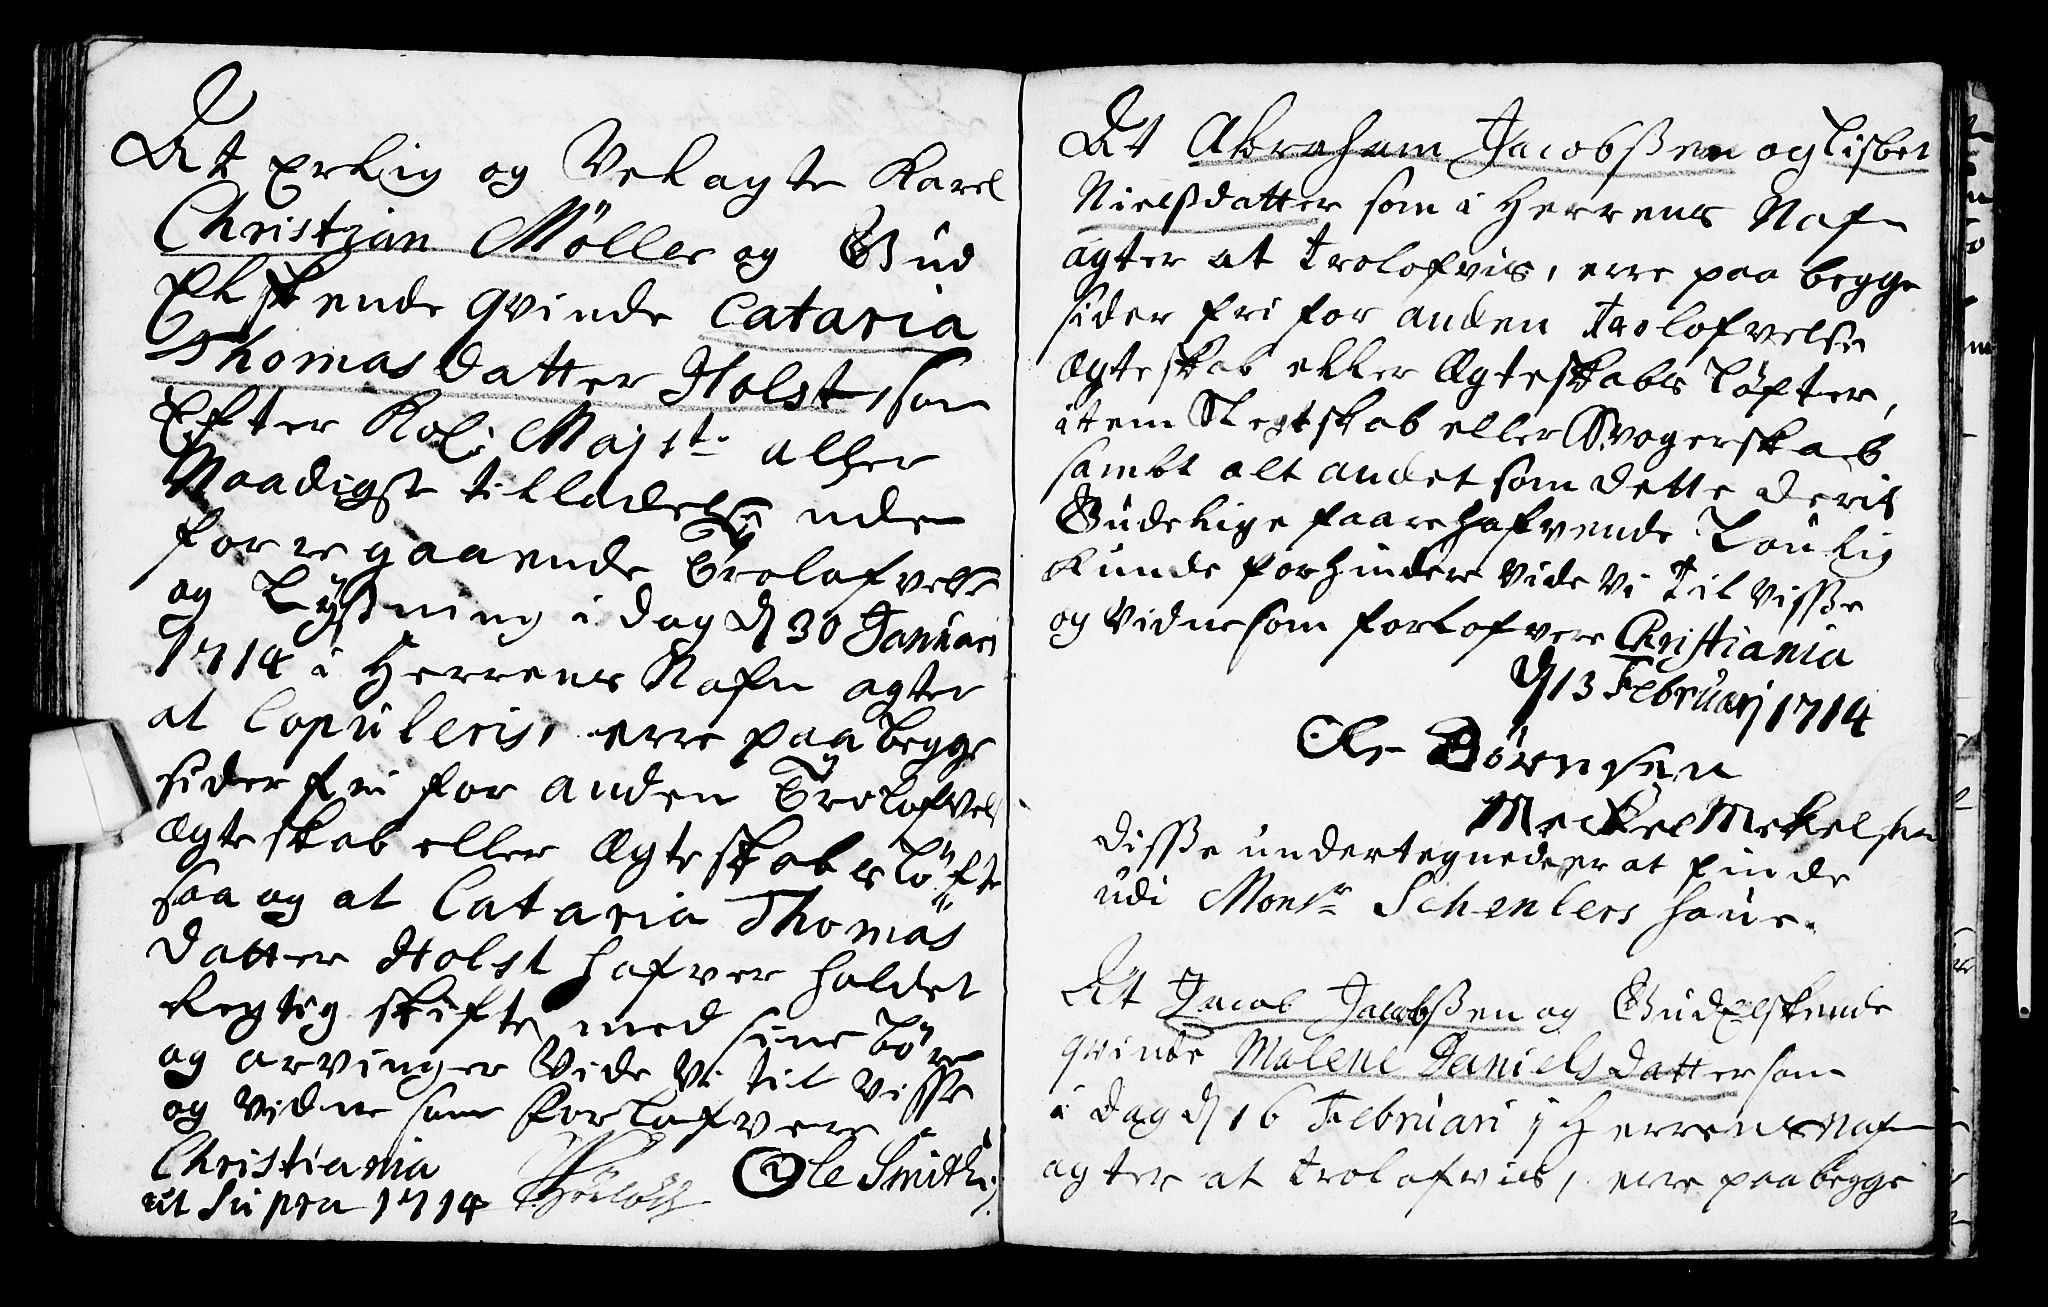 At Erlig og Velagte Karel
Christian Möller og Gud
Elskende qvinde Cataria
Thomasdatter Holst, som
Efter Kol: Majst: aller
Naadigste tilladelse uden
forregaaende Trolofvelse
og Lÿßning i dag d 30 Januari
1714 i Herrens Nafn agter
at Copuleris, erre paa begge
sider fri for anden Trolofvels
ægteskab eller Ægteskabs Löfte
saa og at Cataria Thomas
datter Holst hafver holdet
Regtig skifte med sine Börn
og arvinger Vide Vi til visse
og Vidne som forlofvere
Christiania
ut Supra 1714 Ole Smith
At Abraham Jacobßen og Lisbet
Nielsdatter som i Herrens Nafn
agter at trolofvis, erre paa begge
sider fri for anden trolofvelse
Ægteskab eller Ægteskabs Löfter,
item Slegtskab eller Svogerskab
sambt alt andet som dette deris
Gudelige faarehafvende Louklig
kunde forhindre Vide Vi til Visße
og Vidne som forlofvere Christiania
d 13 Februarj 1714
Ole Börnsen
Meckel Mekelsen
disße undertegnede er at finde
udi Monsr Schenlers Huus.
At Jacob Jacobßen og GudElskende
qvinde Malene Daniels datter som
i dag d 16 Februari j Herrens Nafn
agter at trolofvis, erre paa begge